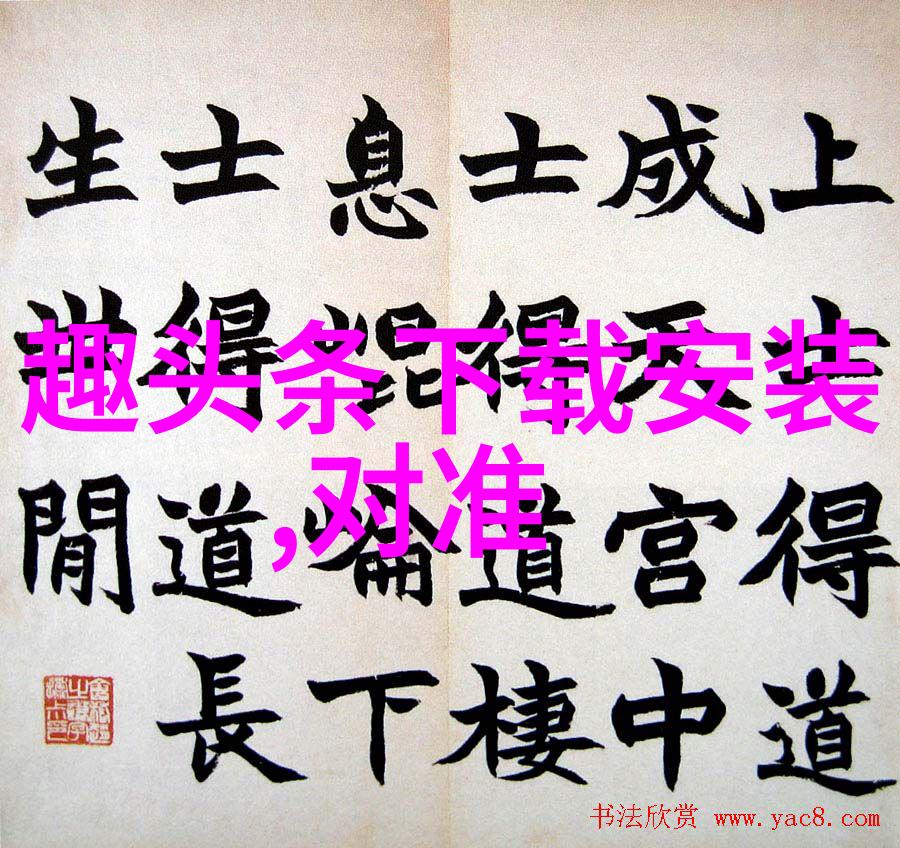 上士得道
成天宫中
士得道棲
息崐崘下
士得道長
生世閒
趣头条下载安装
,对准
书法欣赏 www.yac8.com